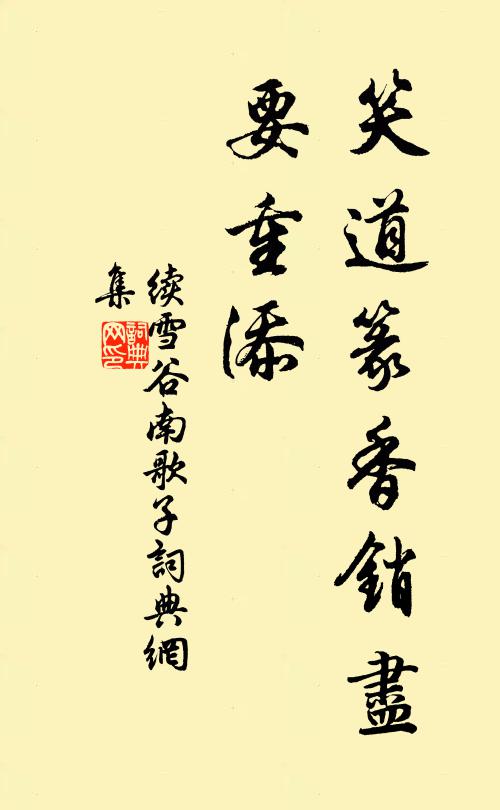 笑道篆香銷盡
要重添
續雪谷南歌子詞典網
集
詞典
网印